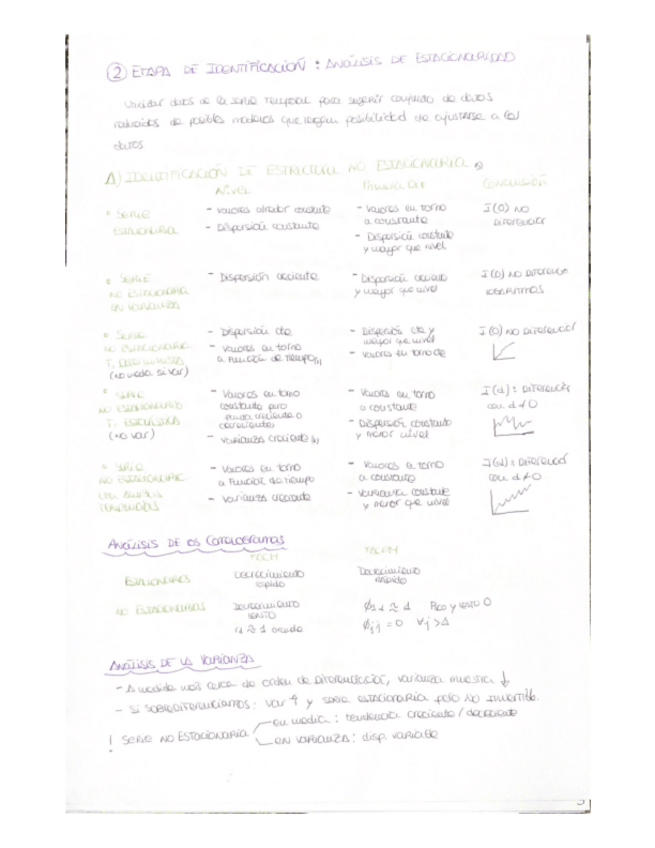 ② ETAPA DE IDENTIFICACIÓN : ANÁLISIS DE ESTACIONARIDAD
datos de la serie temporal para sugerir conjunto de datos
de posibles modelos que tengan posibilidad de ajustarse a los
datos
A) IDENTIFICACIÓN DE ESTRUCTURA NO ESTACIONARIA
NIVEL Primera Dif CONCLUSIÓN
• SERIE ESTACIONARIA
- valores alrededor constante
- Dispersión constante
- Valores en torno
a constante
- Dispersión constante
y mayor que nivel
I(0) NO
DIFERENCIAR
• SERIE
NO ESTACIONARIA
EN VARIANZA
- Dispersión creciente
- Dispersión
y mayor que nivel
I(0) NO DIFERENCIAR
LOGARITMOS
• SERIE
NO ESTACIONARIA
T. DETERMINISTA
(no media si var)
- Dispersión cte
- valores en torno
a función de tiempo
- Dispersión cte y
mayor que nivel
- valores en torno
I(0) NO DIFERENCIAR
• SERIE
NO ESTACIONARIO
T.
(no var)
- Valores en torno
constante pero
creciente o
decreciente
- varianza creciente
- Valores en torno
a constante
- Dispersión constante
y menor nivel
I(d) : DIFERENCIAR
con d≠0
• SERIE
NO ESTACIONARIA
- Valores en torno
a función de tiempo
- Varianza creciente
- Valores en torno
a constante
- varianza constante
y menor que nivel
I(d) : DIFERENCIAR
con d≠0
ANÁLISIS DE OS Correlogramas
ESTACIONARIOS
Decrecimiento
rápido
Decrecimiento
rápido
NO ESTACIONARIOS
Decrecimiento
LENTO
≈ 1
≈ 1 Pico y 0
ϕjj = 0 ∀j >1
ANÁLISIS DE LA VARIANZA
- A medida más cerca de orden de Diferenciación, varianza muestra ↓
- Si SOBREDIFERENCIAMOS : Var ↑ y serie ESTACIONARIA pero NO Invertible.
! SERIE NO ESTACIONARIA
en media : tendencia creciente / decreciente
EN VARIANZA : disp. variable